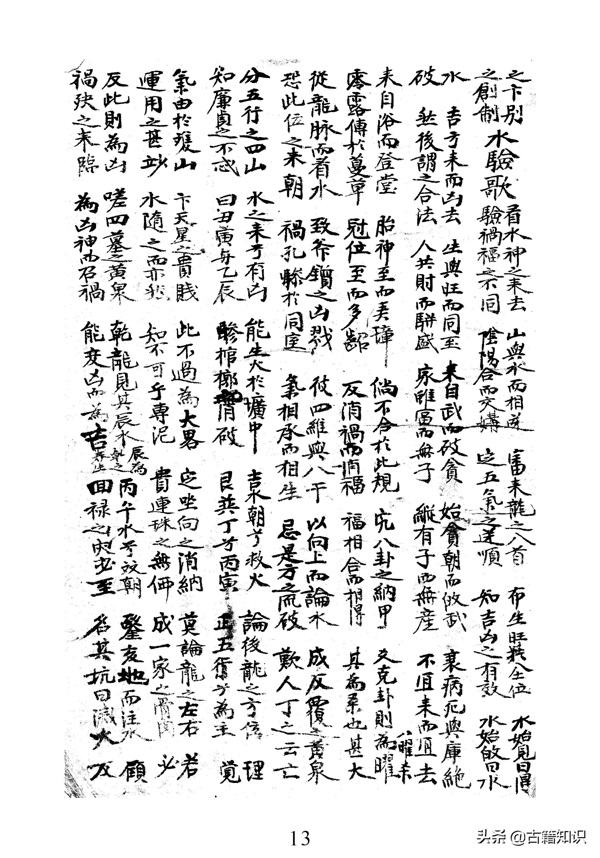 之卞別 水驗歌 看水神之來去 山與水而相逢 審來龍之八首 布生旺於八位 水始見曰得
之創制 驗禍福之不同 陰陽合而交媾 定五氣之逆順 知吉凶之有效 水始啟曰水
水 吉方來而凶去 生與旺而同至 來自武而破貪 始貪朝而位武 衰病死與庫絕
破 然後謂之合法 人共財而駢盛 家雖富而無子 縱有子而無産 不宜來而宜去
來自浴而登堂 胎神至而弄璋 倘不合於此規 究八卦之納甲 爻克卦則為曜 八曜
露露傳於蔓草 冠位至而多齠 反消禍而消福 福相合而相得 其為系也甚大
從龍脉而看水 致斧鑕之凶戮 彼四維與八干 以向上而論水 成反覆之黃泉
恐此位之來朝 禍孔慘於同室 氣相承而相生 忌是方之流破 歎人丁之云亡
分五行之四山 水之來兮有凶 能生大於壙中 吉水朝兮救火 論後龍之方位 理
知廉貞之不忒 曰丑寅与乙辰 慘棺槨消破 艮巽丁兮丙寅 正五行兮為主 覺
氣由於發山 卞天星之貴賤 此不過為大畧 定坐向之消納 莫論龍之左右 若
運用之甚妙 水隨之而亦然 知不可乎專泥 貴連珠之無価 成一家之骨肉 必
反此則為凶 嗟四墓之黃泉 乾龍見其辰水 辰為 丙午水兮放朝 鑿友地而注水 顧
禍殃之來臨 為凶神而召禍 能変凶而為吉 回禄之災必至 名其坑曰滅火 反
13
头条 @古籍知识